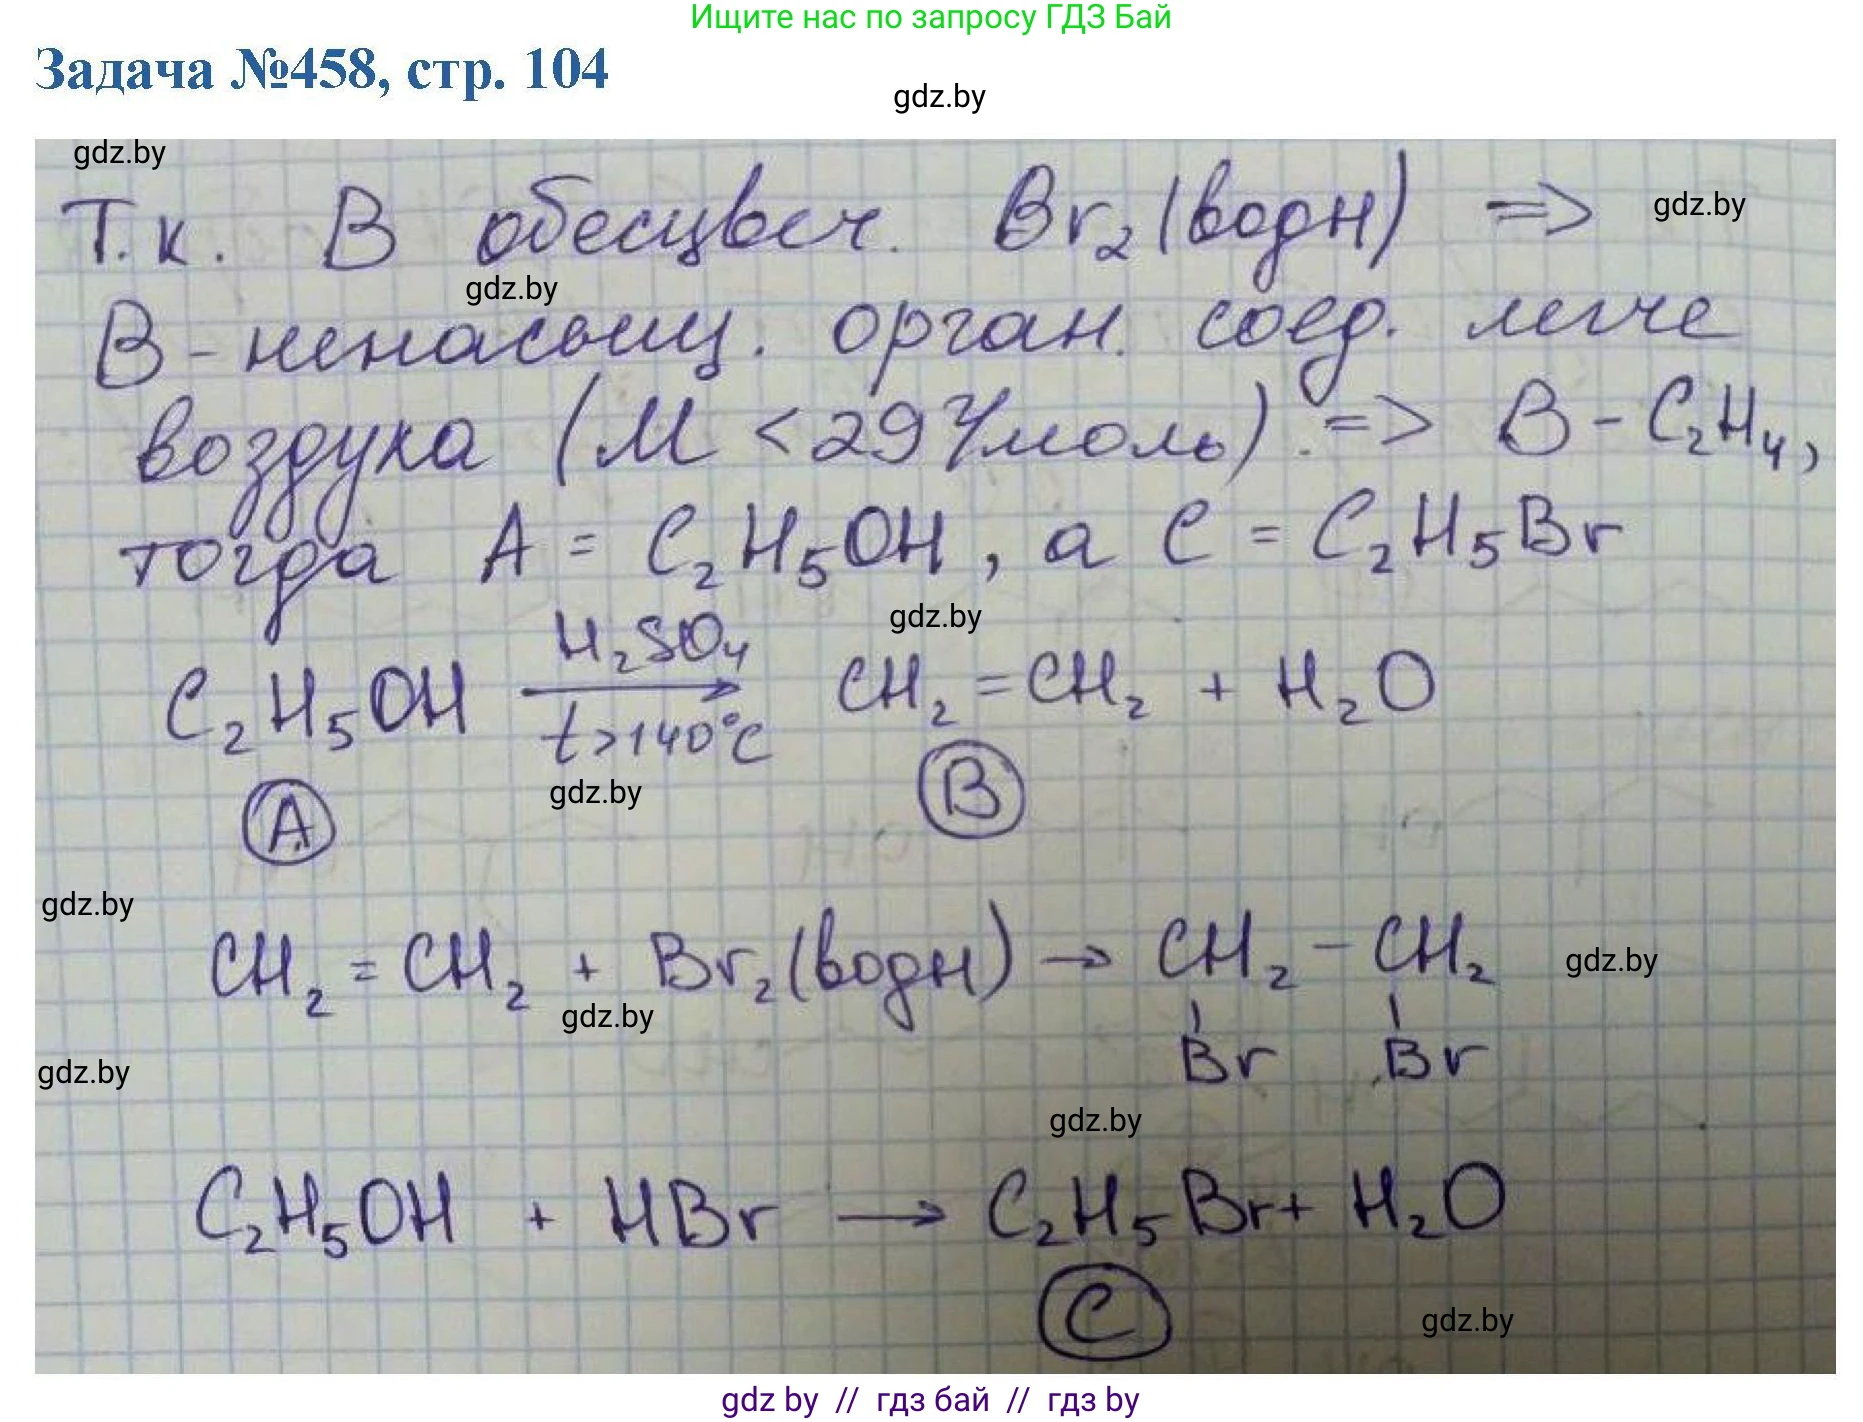 Ищите нас по запросу ГДЗ Бай
Задача №458, стр. 104
gdz.by
gdz.by
Т.к. В обесцвеч. Br₂(водн) =>
gdz.by
gdz.by
В-ненасыщ. орган. соед. легче
воздуха (М < 29 г/моль) => В - C₂H₄,
тогда А = C₂H₅OH, а С = C₂H₅Br
gdz.by
C₂H₅OH H₂SO₄ → t>140°C CH₂=CH₂ + H₂O
gdz.by
А В
gdz.by
CH₂=CH₂ + Br₂(водн) → CH₂-CH₂
gdz.by
gdz.by
Br Br
gdz.by
gdz.by
C₂H₅OH + HBr → C₂H₅Br + H₂O
С
gdz.by
gdz by // гдз бай // гдз by